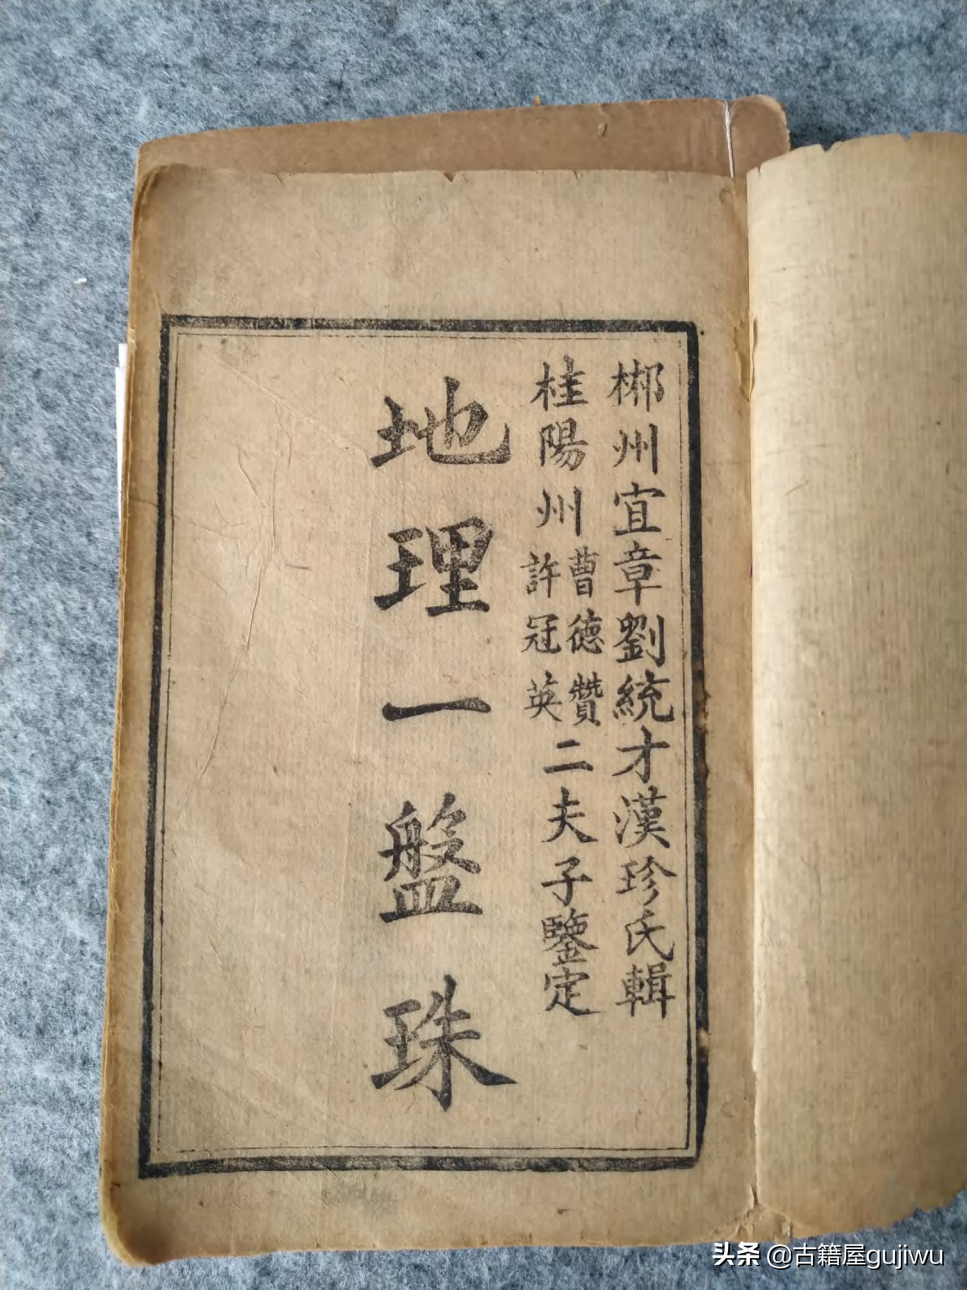 郴州宜章劉統才漢珍氏輯
桂陽州曹德贊許冠英二夫子鑒定
地理一盤珠
头条 @古籍屋gujiwu